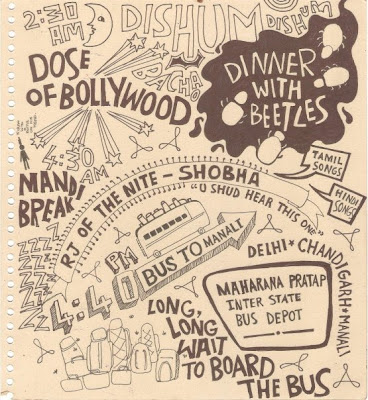 2:30
AM
DISHUM
DISHUM
BACHAO
DOSE
OF BOLLYWOOD
DINNER
WITH
BEETLES
4:30
AM
MANDI
BREAK
TAMIL
SONGS
HINDI
SONGS
RJ OF THE NITE - SHOBHA
"U SHUD HEAR THIS ONE"
ZZZZZZZ
4:40 PM
BUS TO MANALI
DELHI * CHANDIGARH * MANALI
MAHARANA PRATAP
INTER STATE
BUS DEPOT
LONG,
LONG
WAIT
TO BOARD
THE BUS